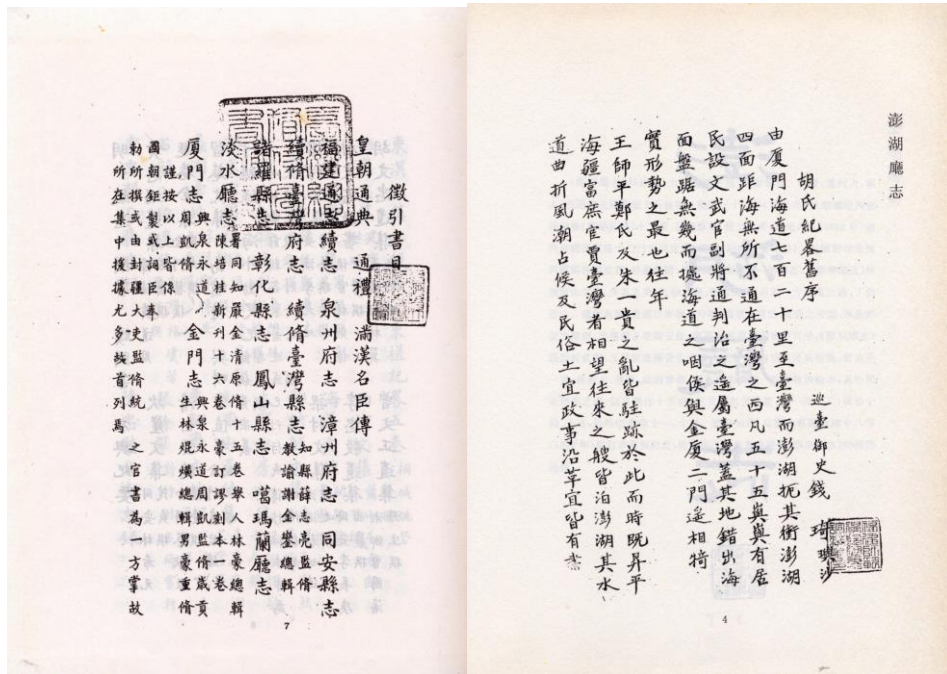 澎湖廳志
胡氏紀畧舊序
巡臺御史錢 琦璵沙
由厦門海道七百二十里至臺灣而澎湖扼其衝澎湖
四面距海無所不通在臺灣之西凡五十五嶼嶼有居
民設文武官副將通判治之遥屬臺灣蓋其地錯出海
面盤踞無幾而扼海道之咽侯與金厦二門遥相犄
實形勢之最也往年
王師平鄭氏及朱一貴之亂皆駐跡於此而時既昇平
海疆富庶官賈臺灣者相望往來之艘皆泊澎湖其水
道曲折風潮占候及民俗土宜政事沿革宜皆有
4
徵引書目
皇朝通典 通禮 滿漢名臣傳
福建通志續志 泉州府志 漳州府志 同安縣志
續脩臺灣府志 續脩臺灣縣志 知縣薛志亮監脩
教諭謝金鑾總輯
諸羅縣志 彰化縣志 鳳山縣志 噶瑪蘭廳志
淡水廳志 署同知嚴金清原脩十五卷舉人林豪總輯
陳培桂新刋十六卷 豪訂謬刻本一卷
厦門志 興泉永道周凱脩 金門志 興泉永道周凱監脩歲貢
生林焜熿總輯男豪重脩
謹按以上皆係
國朝鉅製或詞臣奉
勅所撰或由封疆大吏監脩統之官書為一方掌故
所在集中援據尤多故首列焉
7